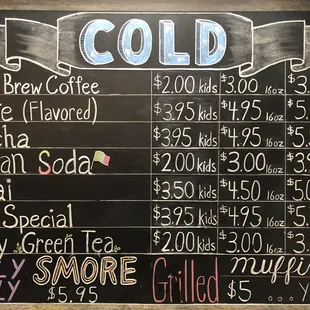 COLD
Brew Coffee $2.00 kids $3.00 16oz $3.
(Flavored) $3.95 kids $4.95 16oz $5.
$3.95 kids $4.95 16oz $5.
Soda $2.00 kids $3.00 16oz $3.9
$3.50 kids $4.50 16oz $5.0
Special $3.95 kids $4.95 16oz $5.
Green Tea $2.00 kids $3.00 16oz $3.
SMORE Grilled
$5.95 $5 ...